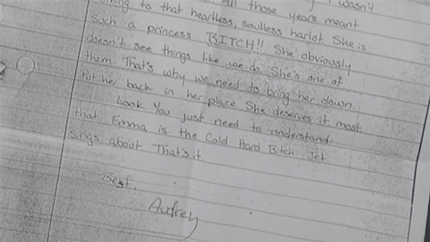 I wasn't
All those years meant
to that heartless, soulless harlot. She is
Such a princess BITCH!! She obviously
doesn't see things like we do. She's one of
them That's why we need to bring her down.
Put her back in her place She deserves it most.
Look You just need to understand
that Emma is the Cold Hard Bitch Jet
Sings about That's it.
Best,
Audrey